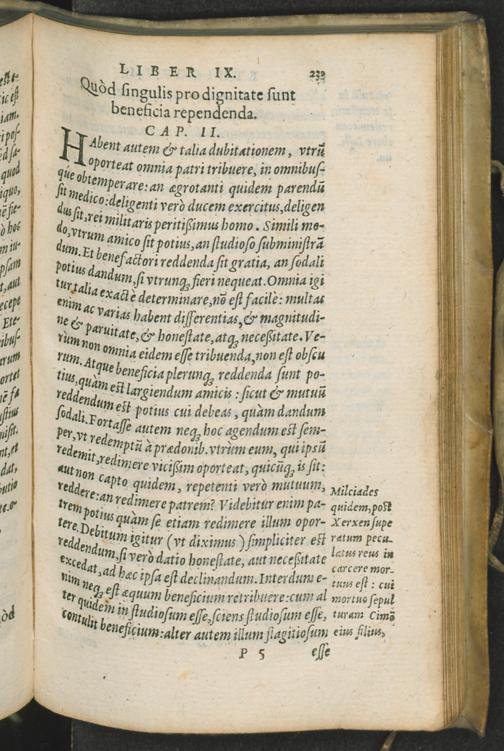 LIBER IX. 233
Quòd singulis pro dignitate sunt
beneficia rependenda.
CAP. II.
HAbent autem & talia dubitationem, vtrũ
oporteat omnia patri tribuere, in omnibus-
que obtemperare: an ægrotanti quidem parendũ
sit medico: deligenti verò ducem exercitus, deligen
dus sit, rei militaris peritißimus homo. Simili mo-
do, vtrum amico sit potius, an studioso subministrã
dum. Et benefactori reddenda sit gratia, an sodali
potius dandum, si vtrunq, fieri nequeat. Omnia igi
tur talia exactè determinare, nõ est facilè: multas
enim ac varias habent differentias, & magnitudi-
ne & paruitate, & honestate, atq, neceßitate. Ve-
rùm non omnia eidem esse tribuenda, non est obscu
rum. Atque beneficia plerunq, reddenda sunt po-
tius, quàm est largiendum amicis: sicut & mutuũ
reddendum est potius cui debeas, quàm dandum
sodali. Fortasse autem neq, hoc agendum est sem-
per, vt redemptũ à prædonib. vtrùm eum, qui ipsũ
redemit, redimere vicißim oporteat, quicũq, is sit:
aut non capto quidem, repetenti verò mutuum,
reddere: an redimere patrem? Videbitur enim pa-
trem potius quàm se etiam redimere illum opor-
tere. Debitum igitur (vt diximus) simpliciter est
reddendum, si verò datio honestate, aut neceßitate
excedat, ad hæc ipsa est declinandum. Interdum e-
nim neq, est æquum beneficium retribuere: cum al
ter quidem in studiosum esse, sciens studiosum esse,
contulit beneficium: alter autem illum flagitiosum
P 5 esse
Milciades
quidem, post
Xerxen supe
ratum pecu-
latus reus in
carcere mor-
tuus est: cui
mortuo sepul
turam Cimõ
eius filius,